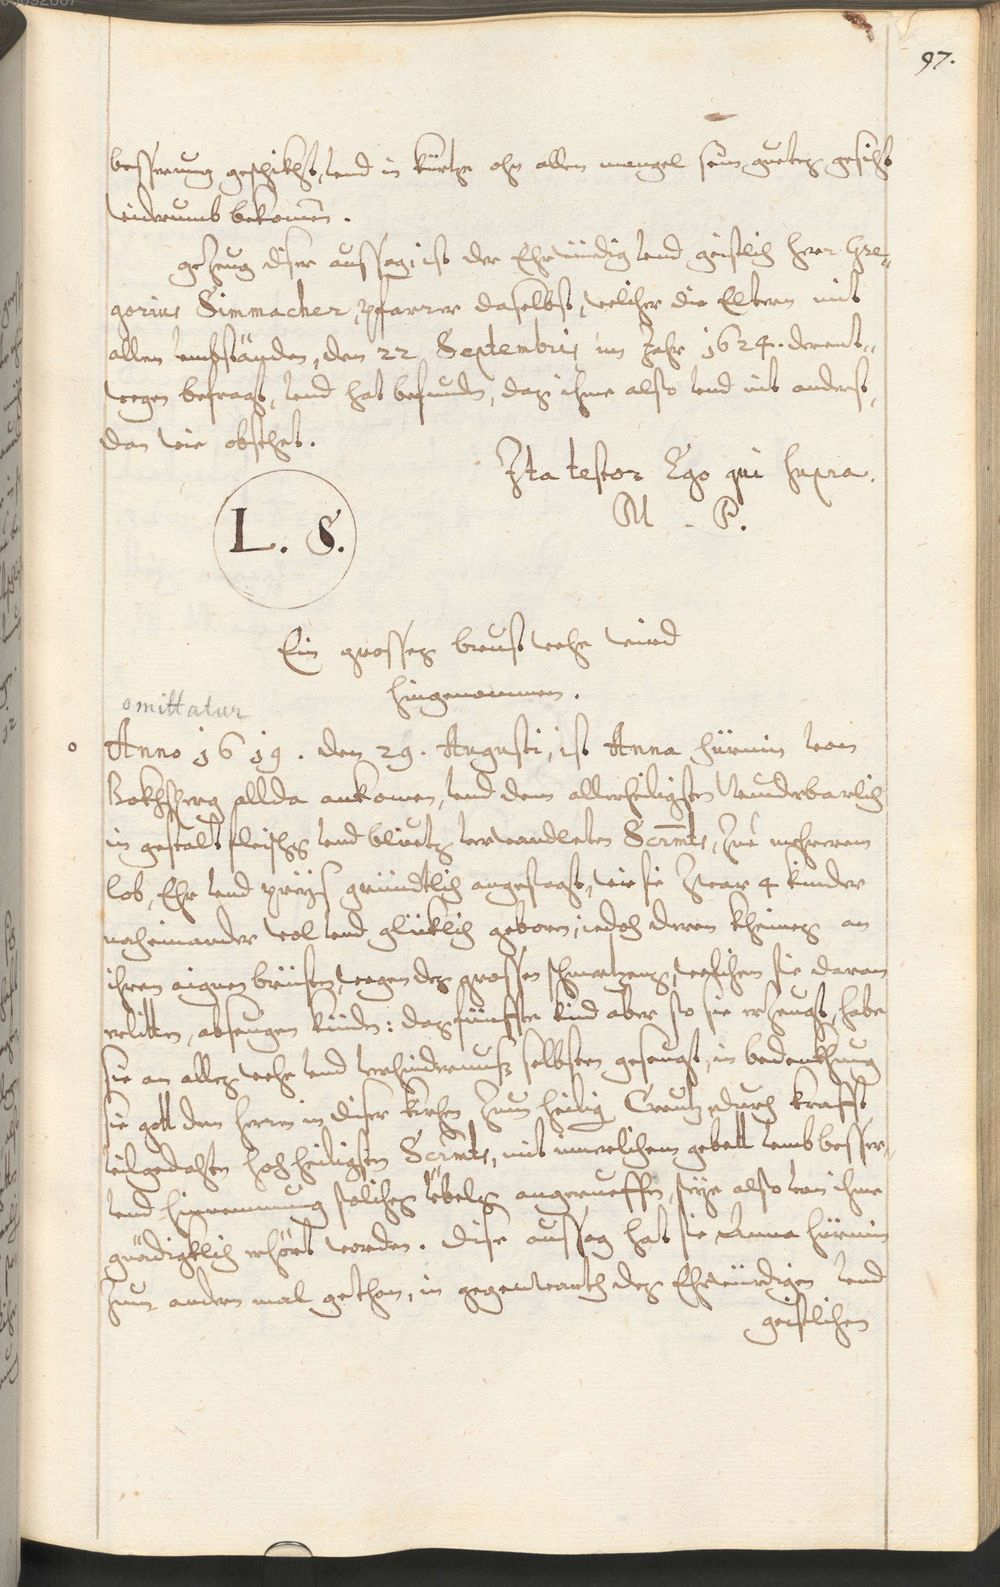 97.
besserung geschikht, vnd in kürtze ohn allen mangel sein guetes gesicht
widerumb bekomen.
gezeug diser aussag ist der Ehrwürdig vnd geistlich herr Gre-
gorius Simmacher, pfarrer daselbst, welicher die Eltern mit
allen vmbständen, den 22 Septembris im Jahr 1624. derent-
wegen befragt, vnd hat befunden, das ihme also vnd nit anderst,
dan wie obsthet.
Ita testor Ego qui supra.
M. P.
L. S.
Ein grosses brust wehe wird
hingenommen.
omittatur
Anno 1619. den 29. Augusti, ist Anna hürnin von
Rokhsperg allda ankomen, vnd dem allerheiligsten wunderbarlich
in gestalt fleischs vnd bluets verwandleten Scrmts, zue mehrerem
lob, Ehr vnd preys gründtlich angesagt, wie sie zwar 4 kinder
nacheinander wol vnd glüklich geborn, iedoch deren kheines an
ihren aignen brüsten, wegen des grossen schmertzens, welichen sie daran
erlitten, absaugen künden: das fünffte kind aber so sie erzeugt, habe
sie an alles wehe vnd verhindernuss selbsten gesaugt, in bedenkhung
sie gott den herrn in diser kirchen zum heilig Creutz, durch krafft
vilgedachten hochheiligsten Scrmts, mit innerlichem gebett vmb besser-
vnd hinnemmung solliches übels angerueffen, seye also von ihme
gnädigklich erhört worden. dise aussag hat sie Anna hürnin
zum andern mal gethon, in gegenwarth des Ehrwürdigen vnd
geistlichen